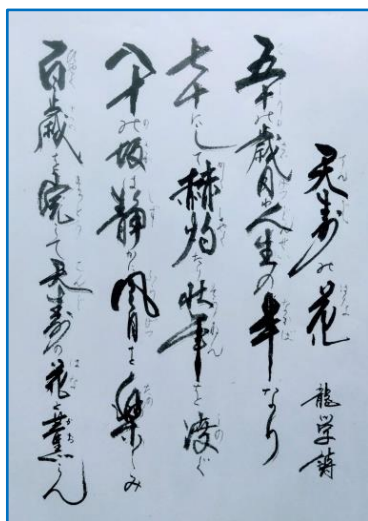 天寿の花
龍学
五十の歳月は人生の半なり
七十にして赫灼たり壮年を凌ぐ
八十の坂は静かに風月を楽しみ
百歳を完して天寿の花を薫らん